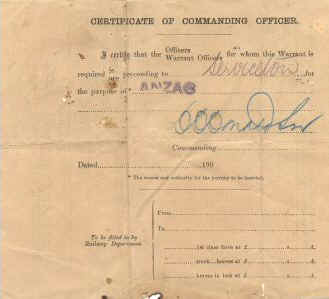 CERTIFICATE OF COMMANDING OFFICER.
I certify that the Officers Warrant Officers for whom this Warrant is
required are proceeding to Serviceton for
the purpose of * ANZAC
Commanding
Dated 190
* The reason and authority for the journey to be inserted.
To be filled in by
Railway Department
From
To
1st class fares at £ s. d.
truck horses at £ s. d.
horses in box at £ s. d.